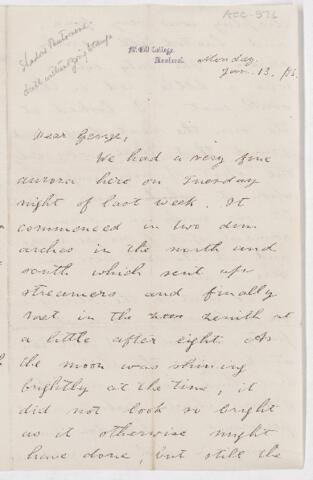 ACC-976
McGill College,
Montreal,
Monday
Jan. 13. /86.
Dear George,
We had a very fine
aurora here on Tuesday
night of last week. It
commenced in two dim
arches in the north and
south which sent up
streamers and finally
met in the zenith at
a little after eight. As
the moon was shining
brightly at the time, it
did not look so bright
as it otherwise might
have done, but still the